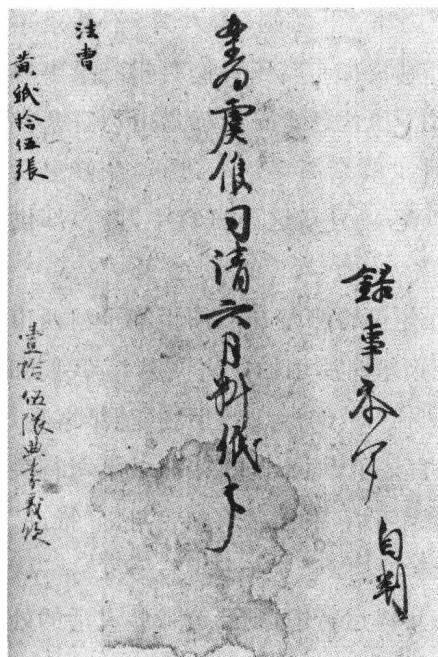 録事參軍 自判
案為虞候司請六月料紙事
法曹
黄紙拾伍張 壹拾伍張典李義領